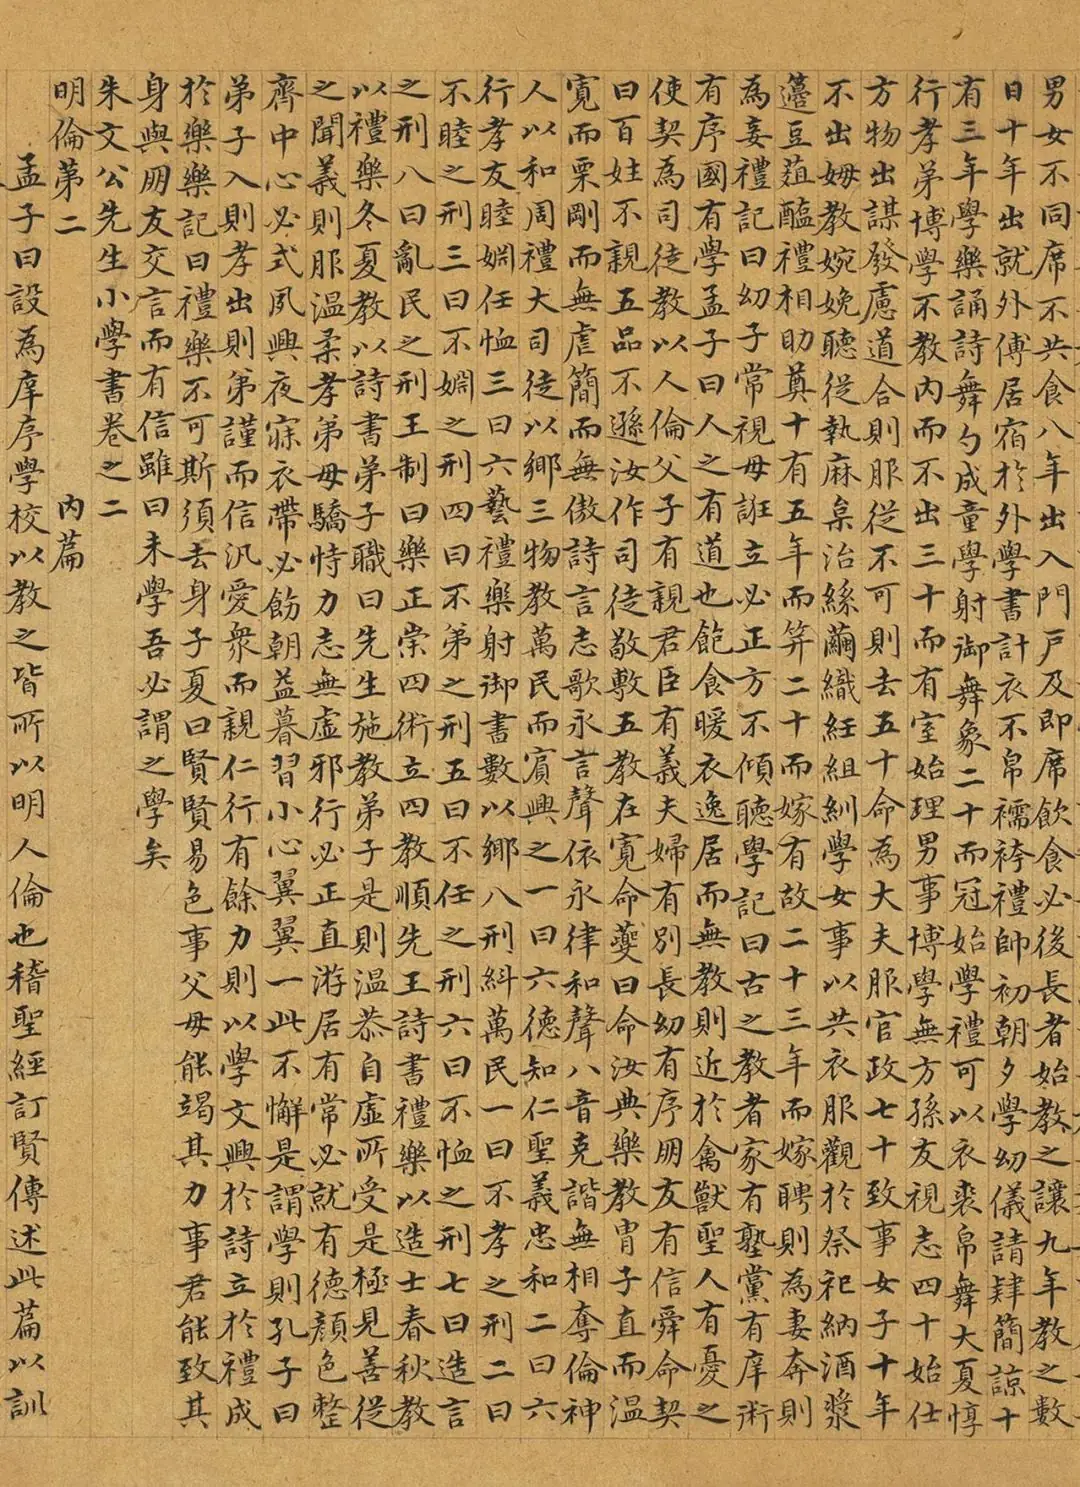 男女不同席不共食八年出入門戶及即席飲食必後長者始教之讓九年教之數
日十年出就外傅居宿於外學書計衣不帛襦袴禮帥初朝夕學幼儀請肄簡諒十
有三年學樂誦詩舞勺成童學射御舞象二十而冠始學禮可以衣裘帛舞大夏惇
行孝弟博學不教內而不出三十而有室始理男事博學無方孫友視志四十始仕
方物出謀發慮道合則服從不可則去五十命為大夫服官政七十致事女子十年
不出姆教婉娩聽從執麻枲治絲繭織紝組紃學女事以共衣服觀於祭祀納酒漿
籩豆菹醢禮相助奠十有五年而笄二十而嫁有故二十三年而嫁聘則為妻奔則
為妾禮記曰幼子常視毋誑立必正方不傾聽學記曰古之教者家有塾黨有庠術
有序國有學孟子曰人之有道也飽食暖衣逸居而無教則近於禽獸聖人有憂之
使契為司徒教以人倫父子有親君臣有義夫婦有別長幼有序朋友有信舜命契
曰百姓不親五品不遜汝作司徒敬敷五教在寬命夔曰命汝典樂教胄子直而溫
寬而栗剛而無虐簡而無傲詩言志歌永言聲依永律和聲八音克諧無相奪倫神
人以和周禮大司徒以鄉三物教萬民而賓興之一曰六德知仁聖義忠和二曰六
行孝友睦婣任恤三曰六藝禮樂射御書數以鄉八刑糾萬民一曰不孝之刑二曰
不睦之刑三曰不婣之刑四曰不弟之刑五曰不任之刑六曰不恤之刑七曰造言
之刑八曰亂民之刑王制曰樂正崇四術立四教順先王詩書禮樂以造士春秋教
以禮樂冬夏教以詩書弟子職曰先生施教弟子是則溫恭自虛所受是極見善從
之聞義則服溫柔孝弟毋驕恃力志無虛邪行必正直游居有常必就有德顏色整
齊中心必式夙興夜寐衣帶必飭朝益暮習小心翼翼一此不懈是謂學則孔子曰
弟子入則孝出則弟謹而信汎愛眾而親仁行有餘力則以學文興於詩立於禮成
於樂樂記曰禮樂不可斯須去身子夏曰賢賢易色事父母能竭其力事君能致其
身與朋友交言而有信雖曰未學吾必謂之學矣
朱文公先生小學書卷之二
明倫第二 內篇
孟子曰設為庠序學校以教之皆所以明人倫也稽聖經訂賢傳述此篇以訓